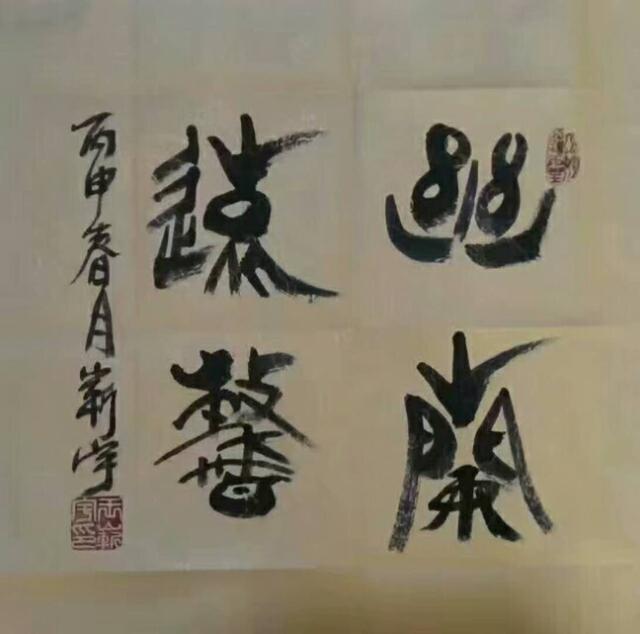 幽蘭
遠馨
丙申春月嶄宇